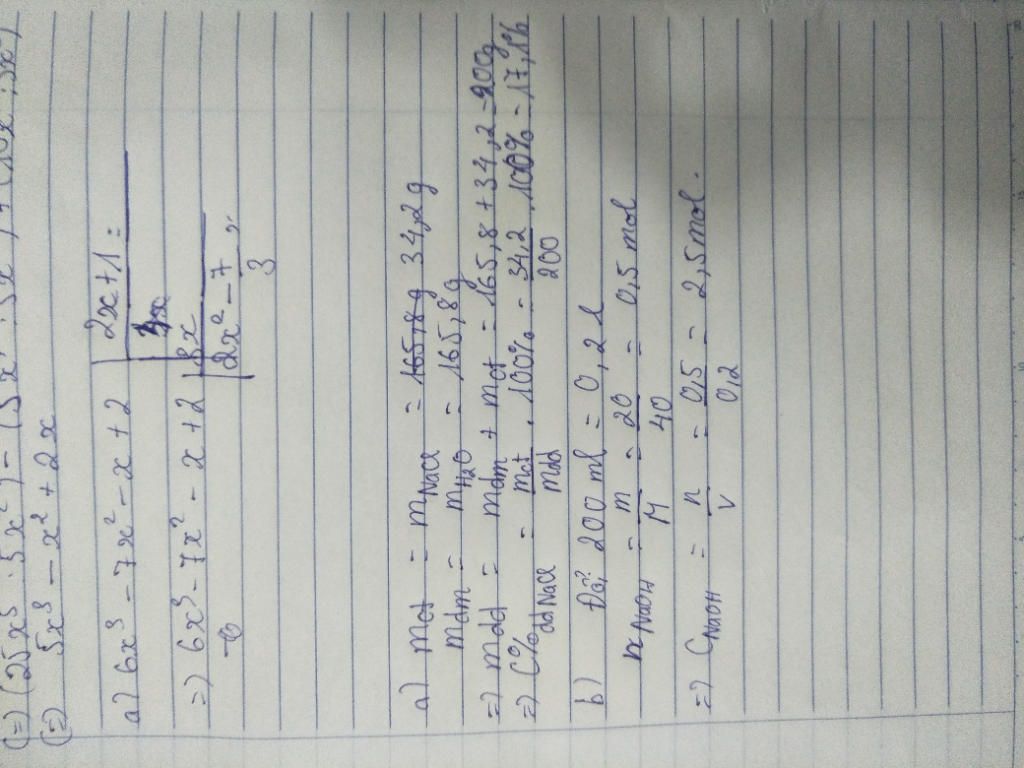 (=) (25x⁵ : 5x²) - (5x⁴ : 5x²) + (10x³ : 5x²)
(=) 5x³ - x² + 2x
a) 6x³ - 7x² - x + 2 | 2x + 1 =
=) 6x³ - 7x² - x + 2
2x² - 7
3
a) mct = mNaCl = 165,8g 34,2g
mdm = mH₂O = 165,8g
=) mdd = mdm + mct = 165,8 + 34,2 = 200g
=) C%ddNaCl = mct/mdd . 100% = 34,2/200 . 100% = 17,1%
b) Đổi 200 ml = 0,2 l
nNaOH = m/M = 20/40 = 0,5 mol
=) CNaOH = n/V = 0,5/0,2 = 2,5 mol.